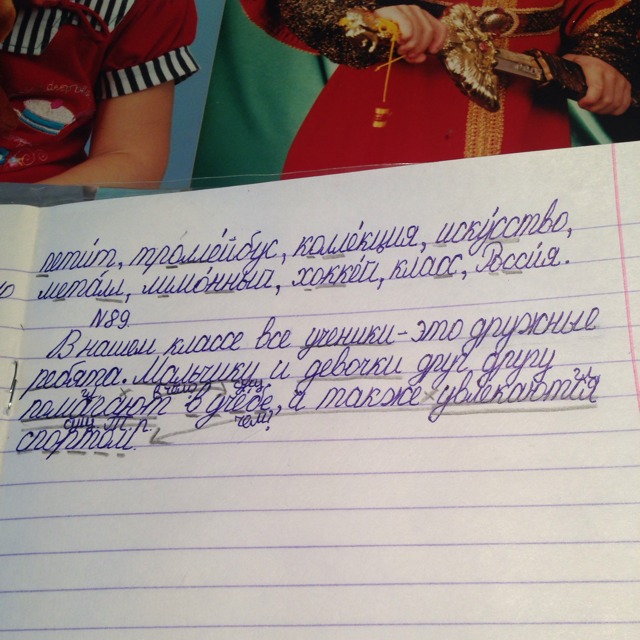 петит, троллейбус, коллекция, искусство,
металл, лимонный, хоккей, класс, Россия.
N89.
В нашем классе все ученики - это дружные
ребята. Мальчики и девочки друг другу
гл. в чём? сущ. гл.
помогают в учёбе, а также увлекаются
сущ. Т.п. чем?
спортом.